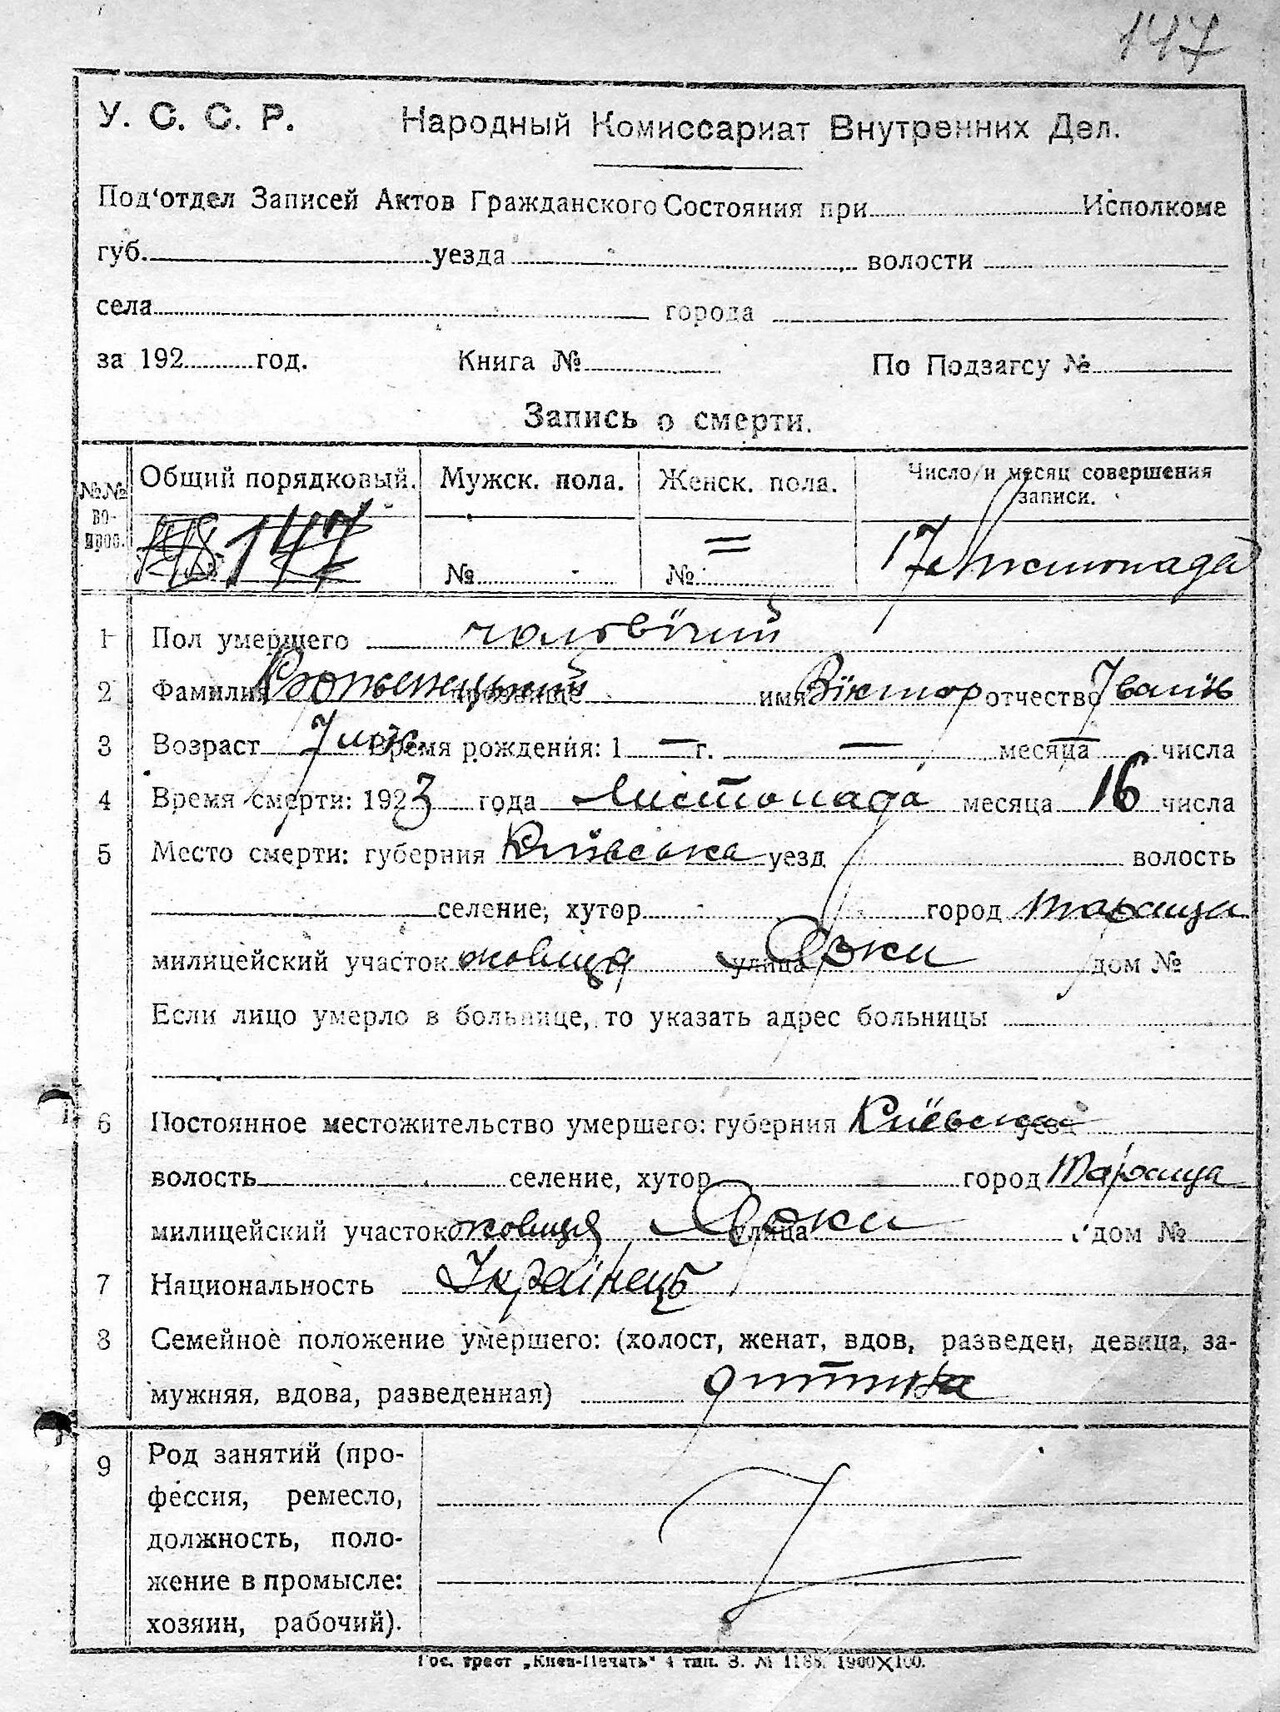 147
У. С. С. Р. Народный Комиссариат Внутренних Дел.
Под'отдел Записей Актов Гражданского Состояния при Исполкоме
губ. уезда волости
села города
за 192 год. Книга № По Подзагсу №
Запись о смерти.
№№ во-прос. Общий порядковый. Мужск. пола. Женск. пола. Число и месяц совершения записи.
147 № № = 17 Листопада
1 Пол умершего чоловічий
2 Фамилия прозвище имя Віктор отчество Іванів
3 Возраст 7 Время рождения: 1 — г. — месяца — числа
4 Время смерти: 1923 года Листопада месяца 16 числа
5 Место смерти: губерния Київська уезд волость
селение, хутор город Тараща
милицейский участок улица дом №
Если лицо умерло в больнице, то указать адрес больницы
6 Постоянное местожительство умершего: губерния Київська уезд
волость селение, хутор город Тараща
милицейский участок улица дом №
7 Национальность Українець
8 Семейное положение умершего: (холост, женат, вдов, разведен, девица, за-
мужняя, вдова, разведенная) дитина
9 Род занятий (про-
фессия, ремесло,
должность, поло-
жение в промысле:
хозяин, рабочий).
Гос. трест „Киев-Печать“ 4 тип. З. № 1188. 1900×100.